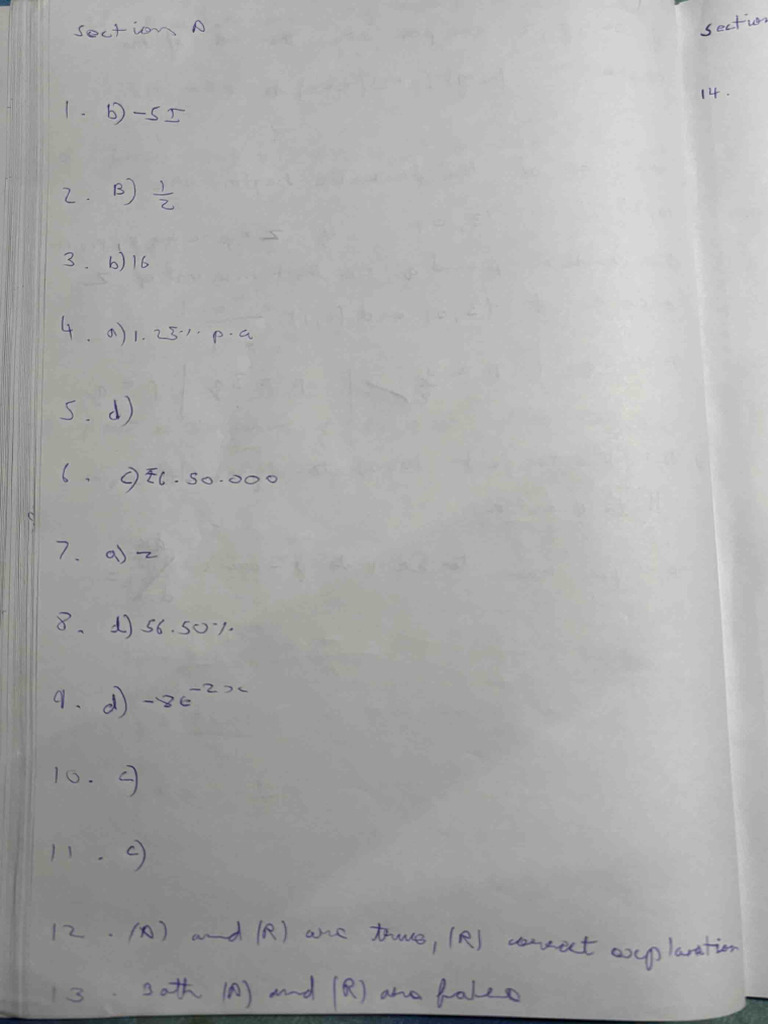 Section A
1. b) -5I
2. B) 1/2
3. b) 16
4. a) 1.25% p.a
5. d)
6. c) ₹6.50.000
7. a) 2
8. d) 56.50%
9. d) -8e^-2x
10. c)
11. c)
12. (A) and (R) are true, (R) correct explanation
13. Both (A) and (R) are false
Section
14.